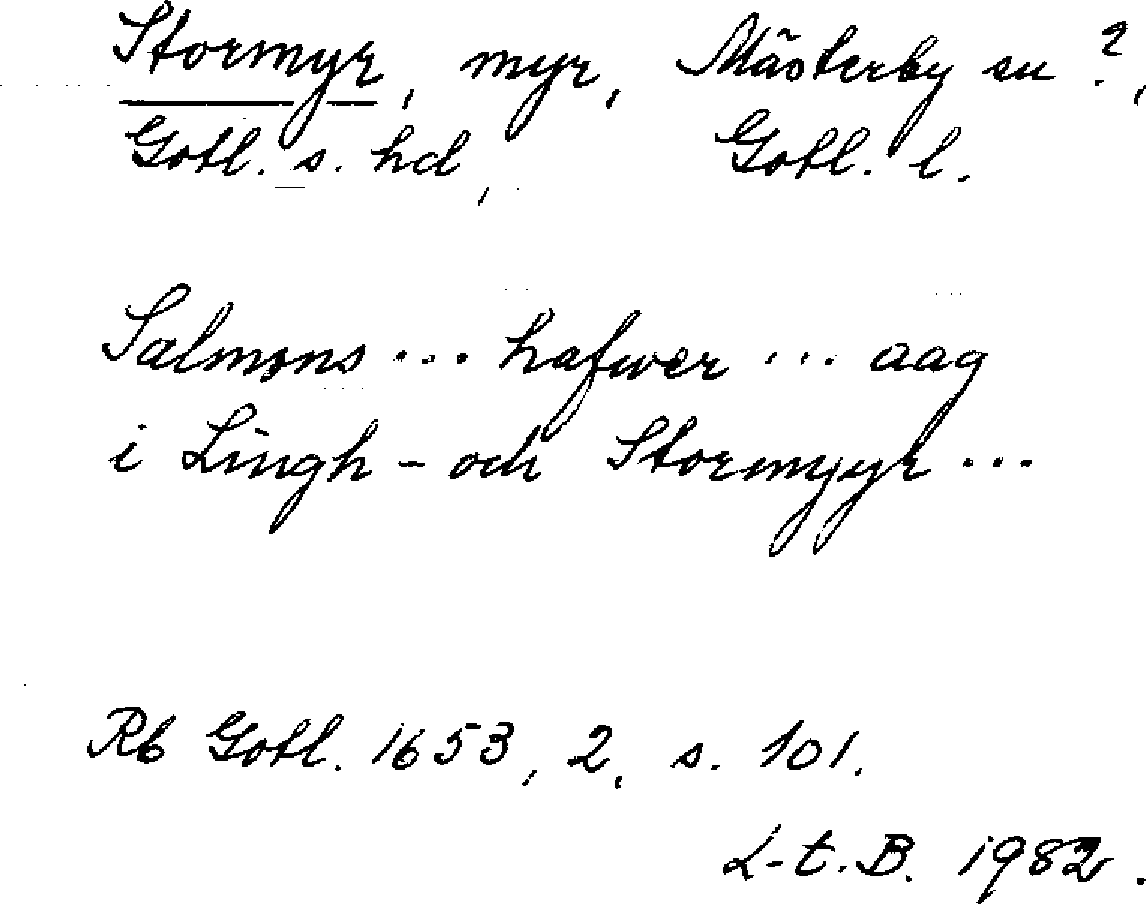 Stormyr, myr, Mästerby sn?,
Gotl. s. hd, Gotl. l.
Salmøns ... hafwer ... aag
i Lingh- och Stormyyr ...
Rb Gotl. 1653, 2, s. 101.
L-t.B. 1982.